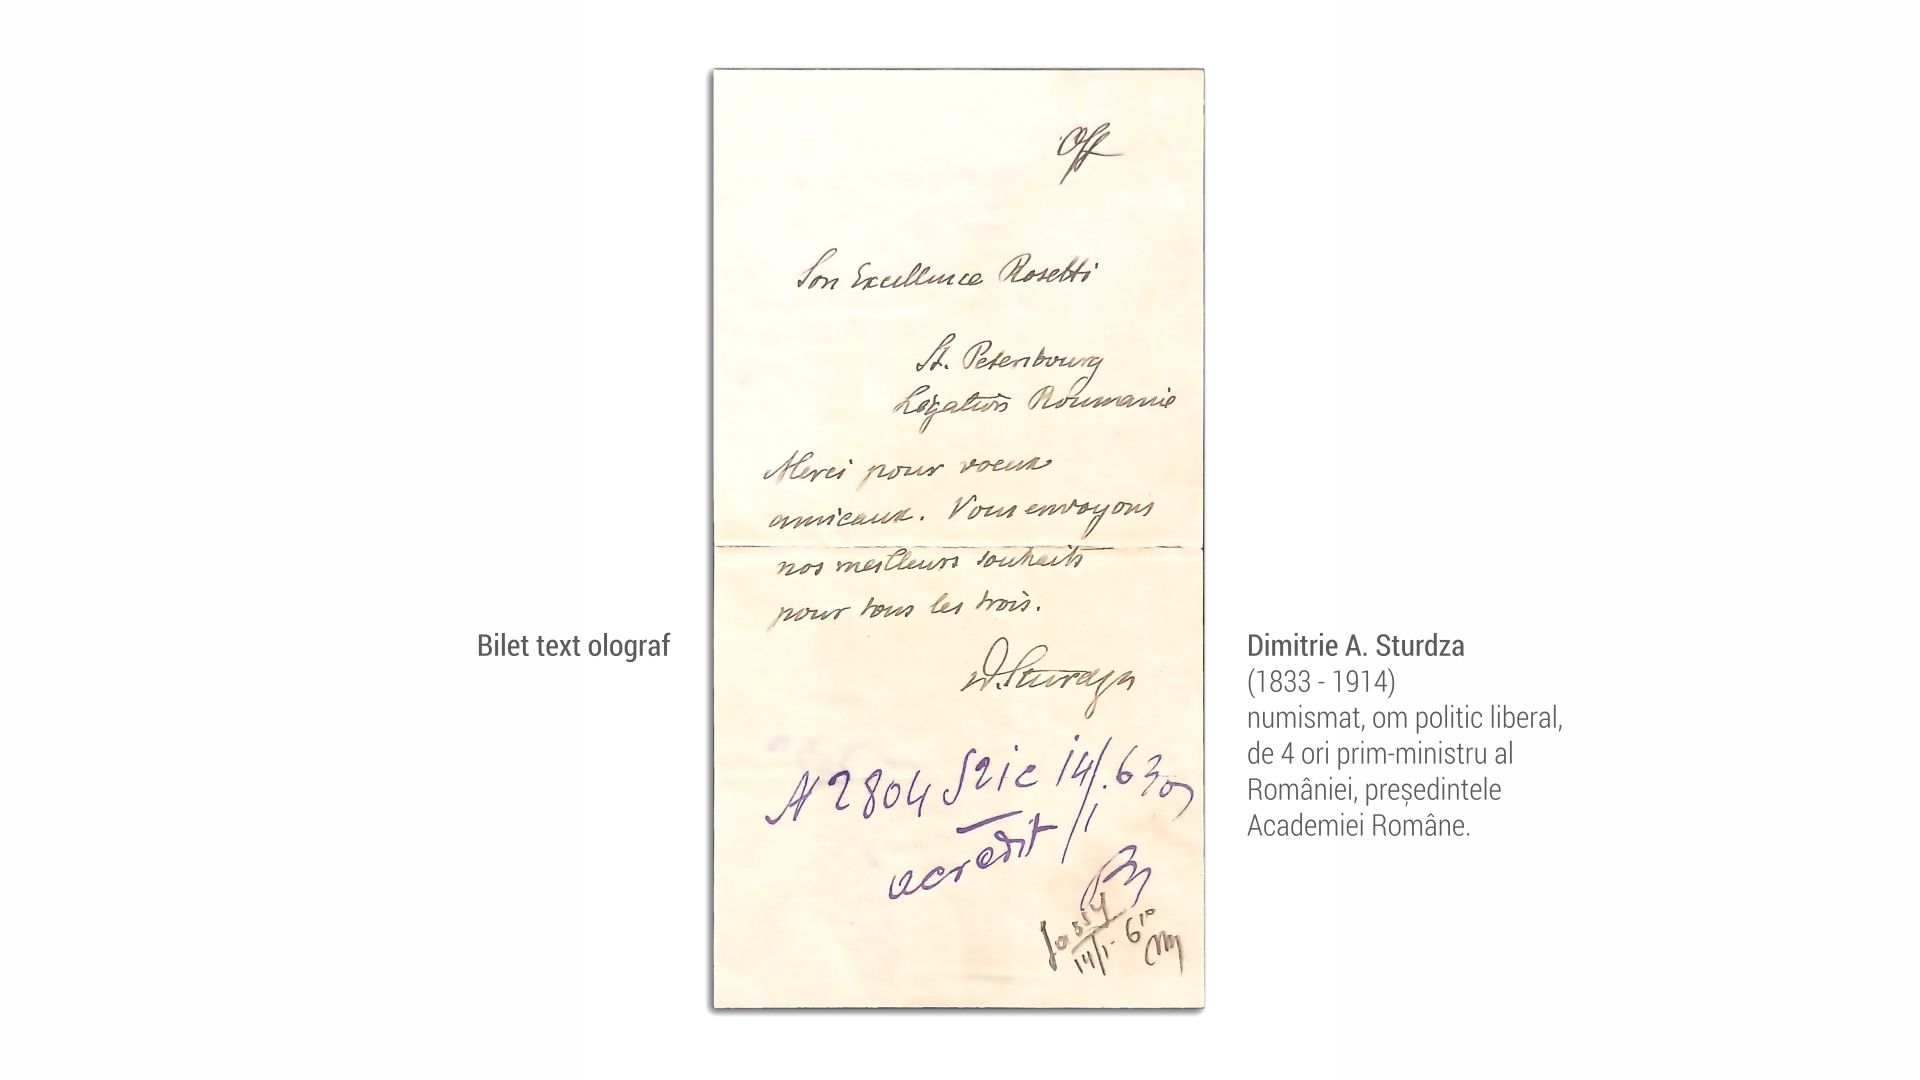 Off
Son Excellence Rosetti
St. Petersbourg
Légation Roumanie
Merci pour voeux
amicaux. Vous envoyons
nos meilleurs souhaits
pour tous les trois.
D. Sturdza
N 2804 14/1 6 30
acredit
Jassy
14/1 6 10
Bilet text olograf
Dimitrie A. Sturdza
(1833 - 1914)
numismat, om politic liberal,
de 4 ori prim-ministru al
României, președintele
Academiei Române.